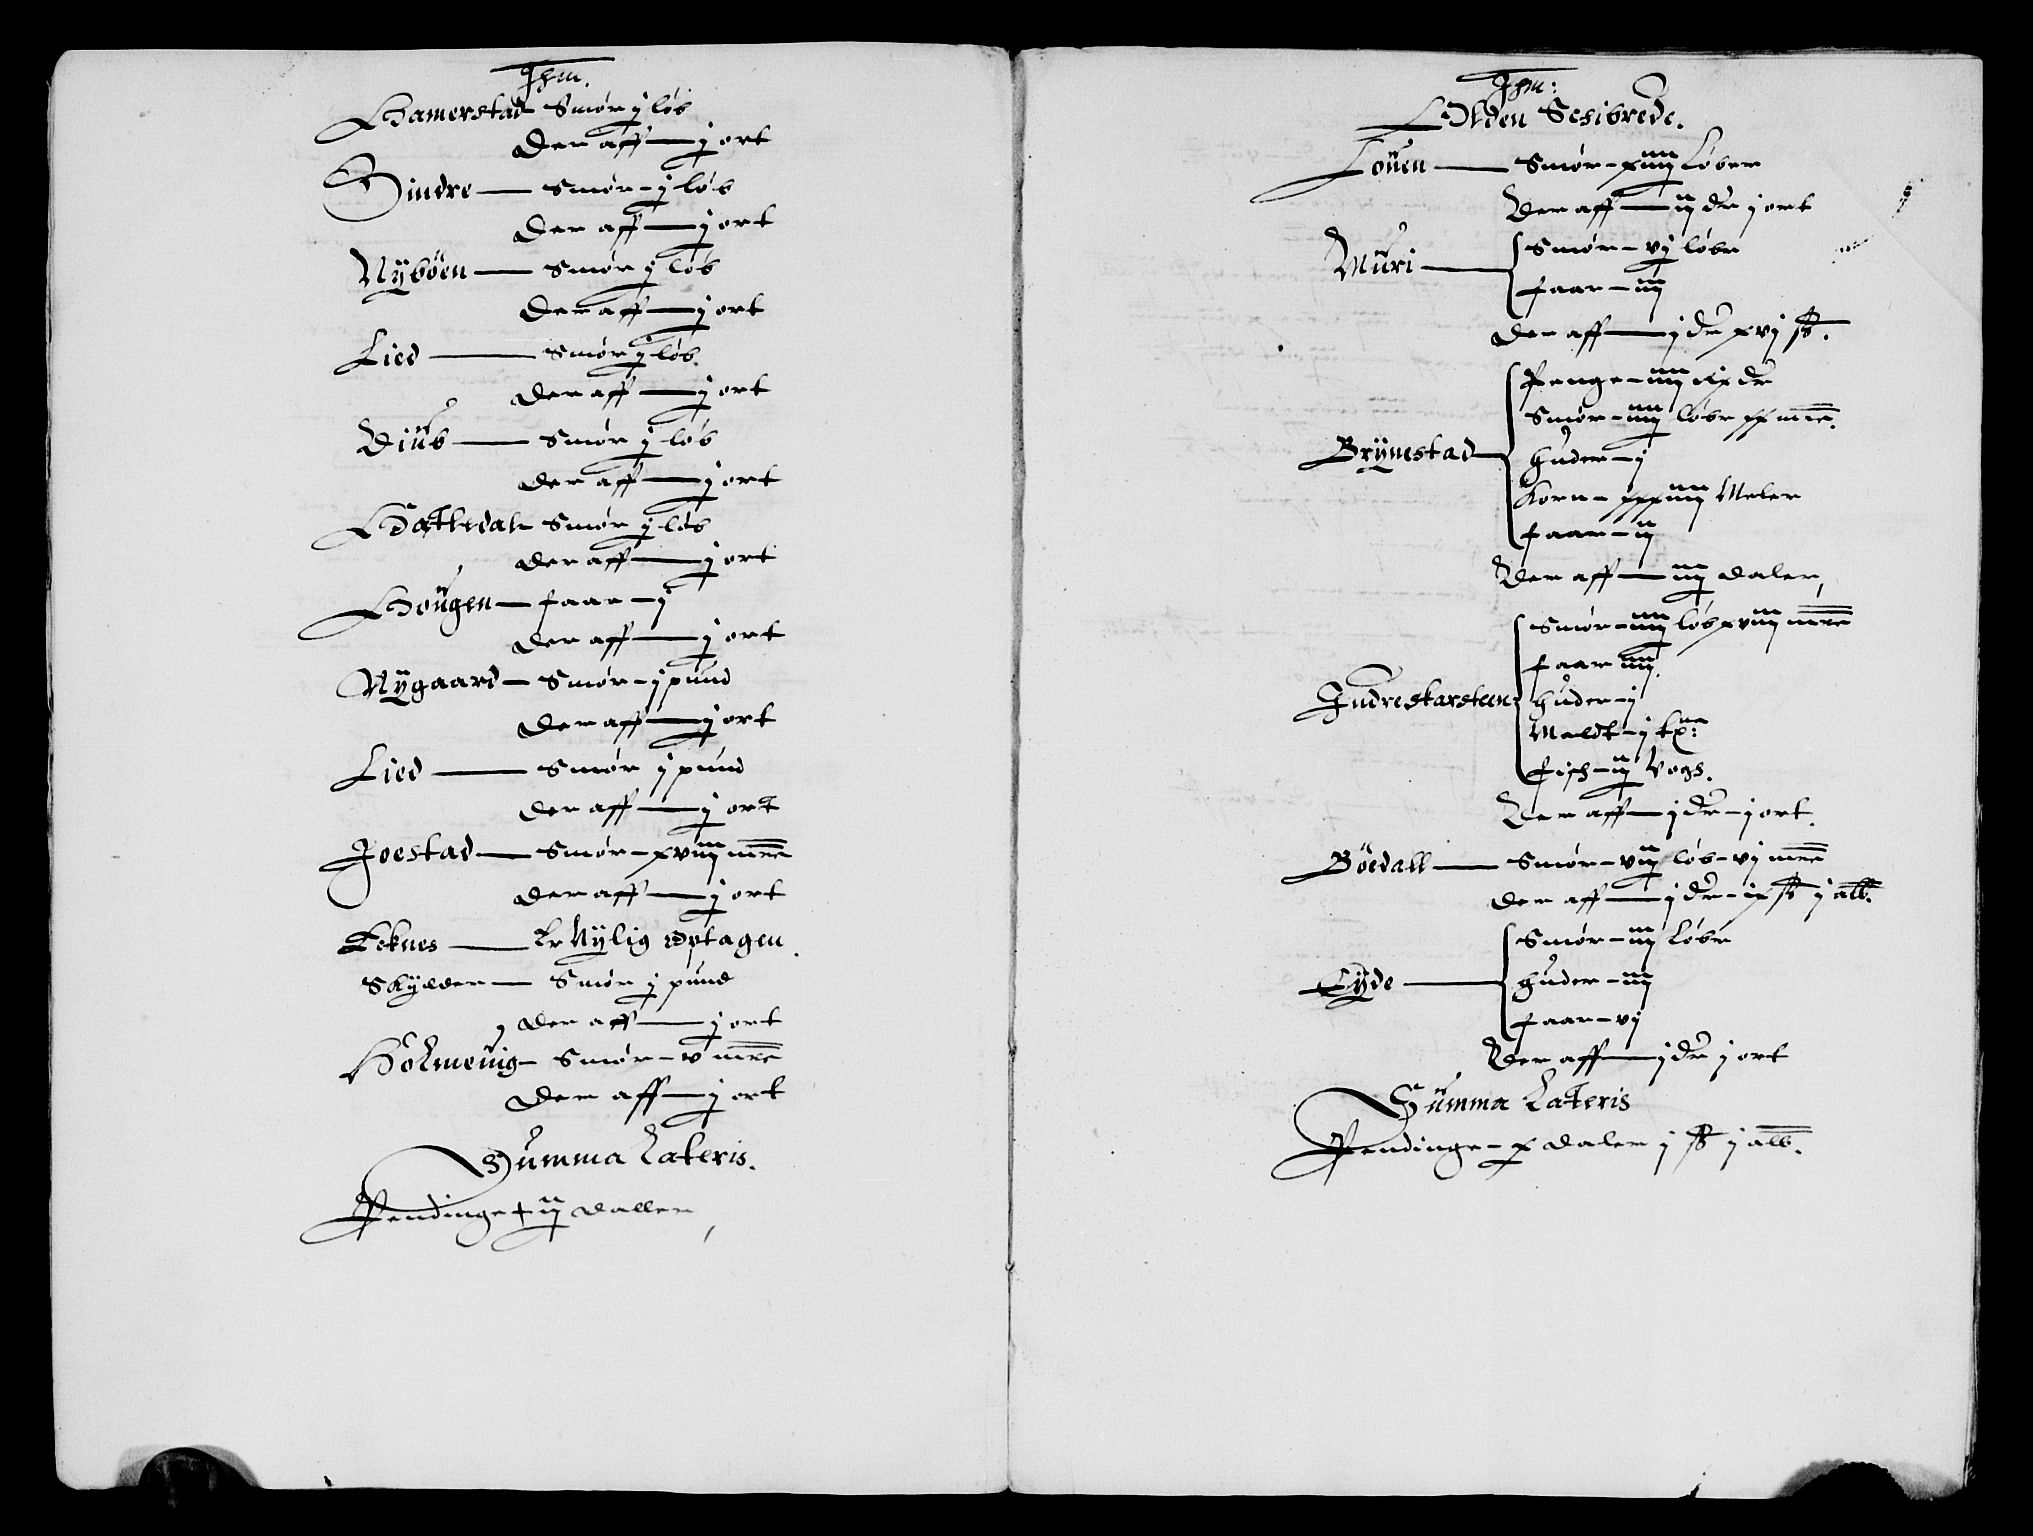 Jhm.
Hamerstad Smør j løb
Der aff — j ort
Sindre — Smør - j løb
Der aff — j ort
Nÿböen — Smør j løb
Der aff — j ort
Lied — Smør j løb.
der aff — j ort
Diüb — Smør j løb
der aff — j ort
Hatledal - Smør j løb
der aff — j ort
Hoügen — faar - j
der aff — j ort
Nÿgaard - Smør - j pund
der aff — j ort
Lied — Smør j pund
der aff — j ort
Joestad — Smør - xviij mrk
der aff — j ort
Teknes — Er Nÿlig optagen.
Skÿlder — Smør j pund
der aff — j ort
Holmeüig - Smør - v mrk
Der aff — j ort
Summa Lateris.
Pendinge - iij daller
Jhm:
Olden Schibrede.
Loüen — Smør - xiiij Løber
Der aff — ij dr j ort
Müri — Smør - vj løbr
faar - iij
der aff — j dr xvj s.
Brÿnestad — Penge - iiij dr
Smør - iiij løbr xx mrk.
huder - j
Korn - xxxiiij Meler
faar - ij
Der aff — iij daler,
Indrestarsteen Smør - iiij løb xviij mrk
faar iiij.
huder - j
Maldt - j tn:
fisch - ij Vogs.
Der aff — j dr - j ort.
Böedall — Smør - viij løb - vj mrk
der aff — j dr - ix s j alb.
Eÿde — Smør - iij løbr
huder - iij
faar - vj
Der aff — j dr j ort
Summa Lateris
Pendinge - x daler j s j alb.